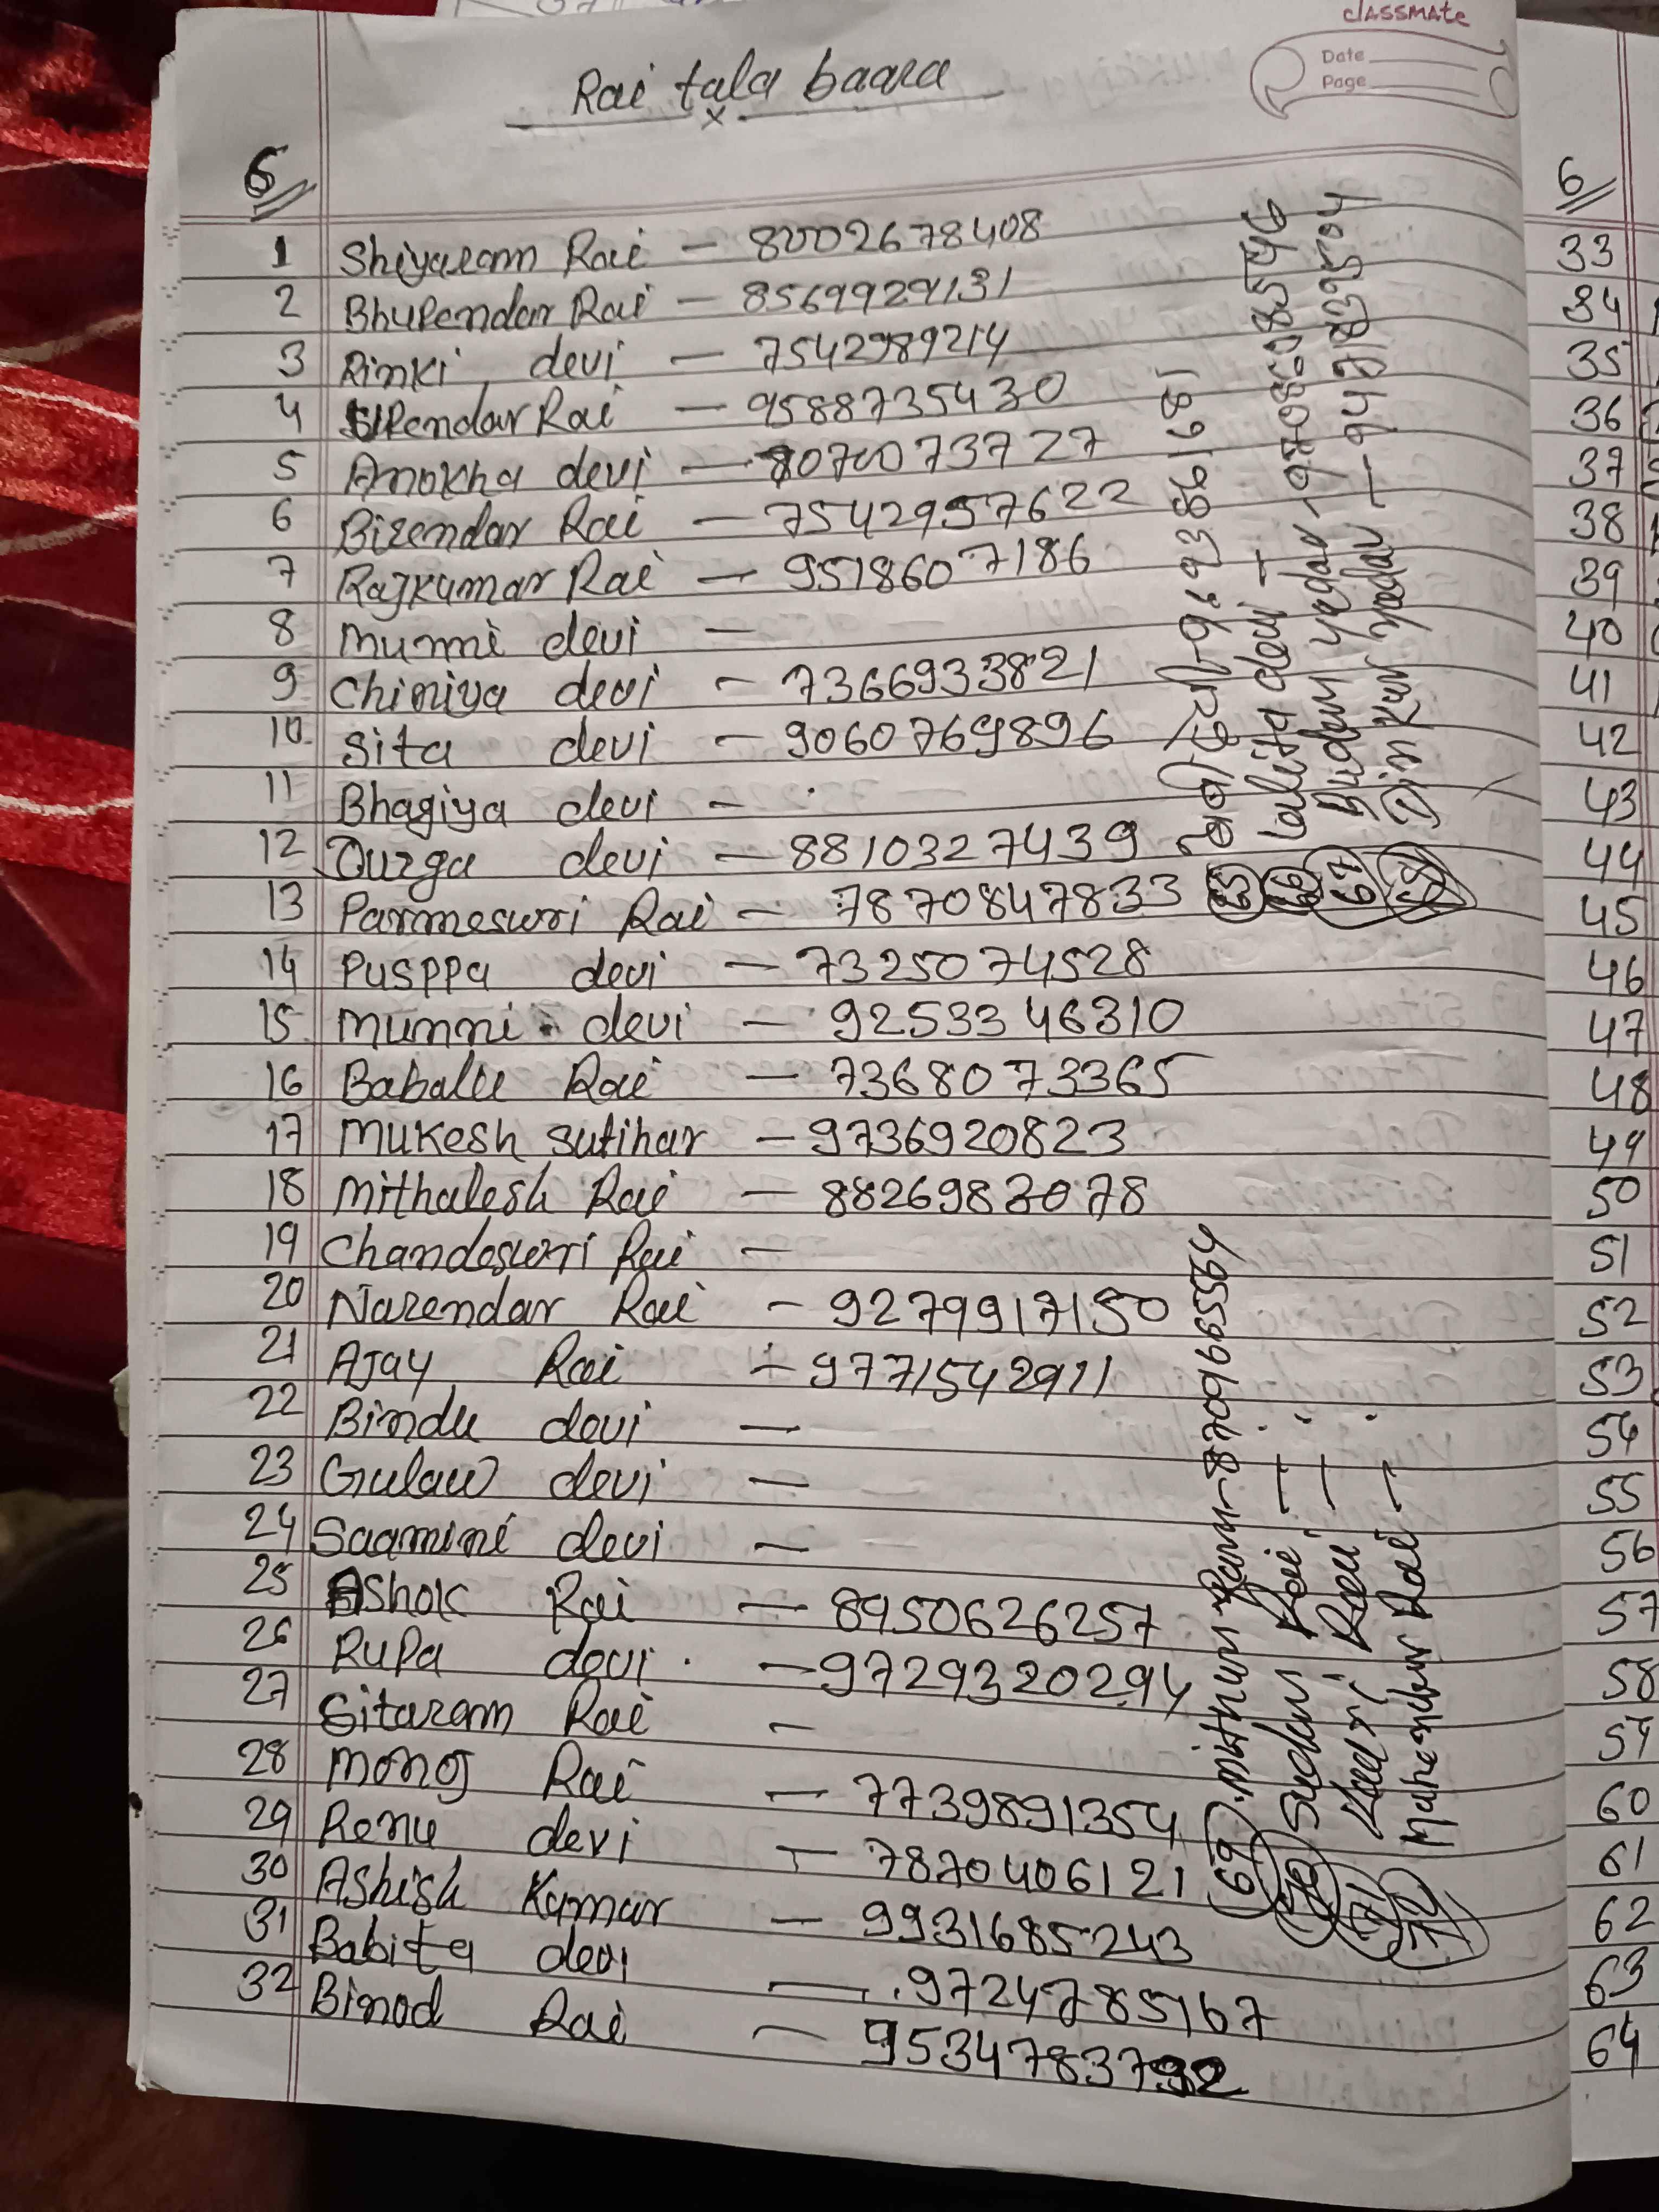 classmate
Date
Page
Rai tala baara
6
1 Shiyaram Rai – 8002678408
2 Bhupendar Rai – 8569929131
3 Rinki devi – 7542989214
4 Surendar Rai – 9588735430
5 Anokha devi – 8070073727
6 Birendar Rai – 7542957622
7 Rajkumar Rai – 9518607186
8 Munni devi –
9 Chiniya devi – 7366933821
10 Sita devi – 9060769896
11 Bhagiya devi –
12 Durga devi – 8810327439
13 Parmeswri Rai – 7870847833
14 Pusppa devi – 7325074528
15 Munni devi – 9253346310
16 Babalu Rai – 7368073365
17 Mukesh sutihar – 9736920823
18 Mithalesh Rai – 8826983078
19 Chandeswri Rai –
20 Narendar Rai – 9279917150
21 Ajay Rai – 9771542911
22 Bindu devi –
23 Gulaw devi –
24 Saamini devi –
25 Ashok Rai – 8950626257
26 Rupa devi – 9729320294
27 Sitaram Rai –
28 Monoj Rai – 7739891354
29 Renu devi – 7870406121
30 Ashish Kumar – 9931685243
31 Babita devi – 9724785167
32 Binod Rai – 9534783792
65 देवी – 9693861681
66 Lalita devi –
67 yadav – 9708608546
68 Dinkar yadav – 9471839504
69 Mithun Ram – 8709665564
70 Sudan Rai –
71 Rai –
72 Rai –
6
33
34
35
36
37
38
39
40
41
42
43
44
45
46
47
48
49
50
51
52
53
54
55
56
57
58
59
60
61
62
63
64